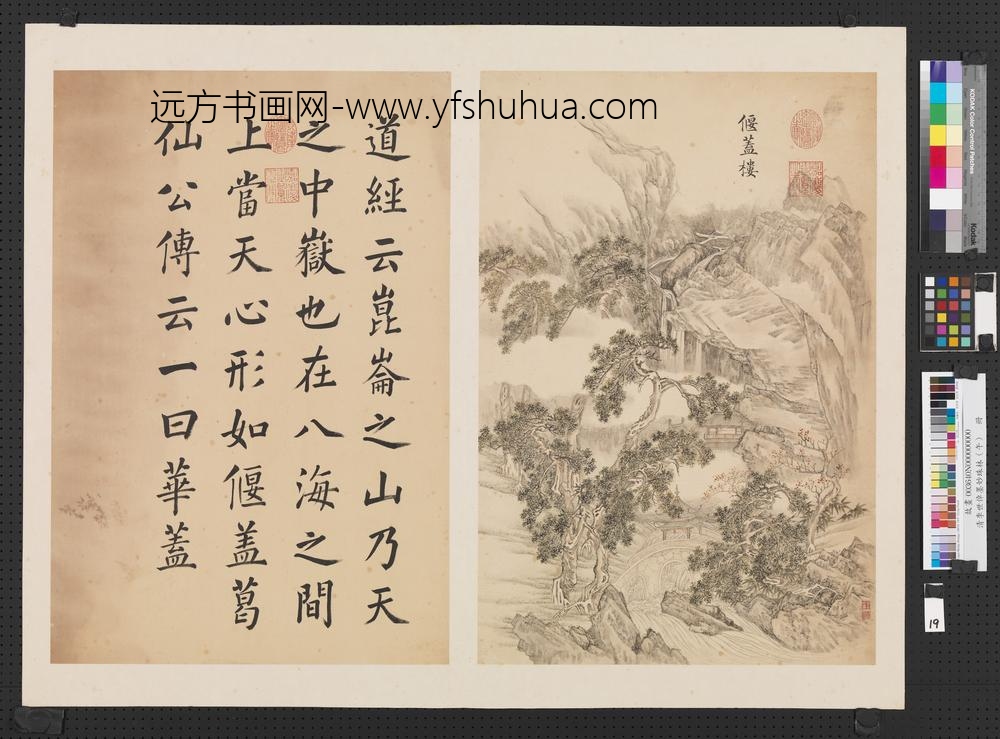 远方书画网-www.yfshuhua.com
偃蓋樓
道經云崑崙之山乃天
之中嶽也在八海之間
上當天心形如偃盖葛
仙公傳云一曰華蓋
KODAK Color Control Patches
Kodak
19